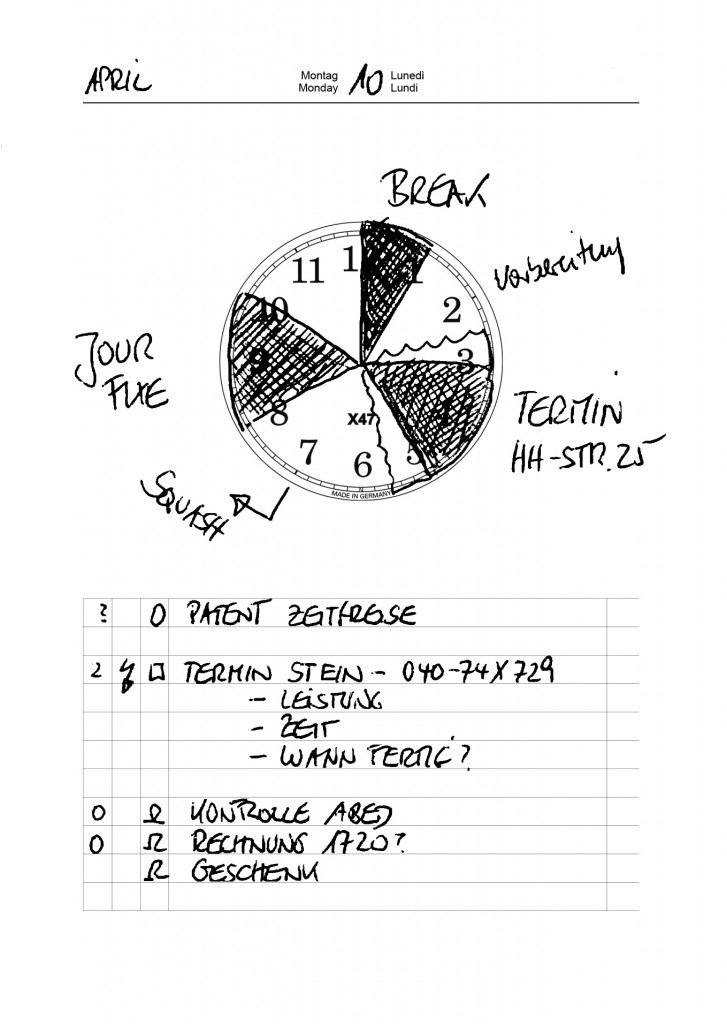 APRIL
Montag 10 Lunedì
Monday Lundi
BREAK
Vorbereitung
11 1 1
10 2
9 3
8 4
7 X47 5
6
MADE IN GERMANY
JOUR
FIXE
TERMIN
HH-STR. 25
SQUASH
? O PATENT ZEITKREISE
2 TERMIN STEIN - 040-74X729
- LEISTUNG
- ZEIT
- WANN FERTIG?
O Ω KONTROLLE
O Ω RECHNUNG 1720?
Ω GESCHENK